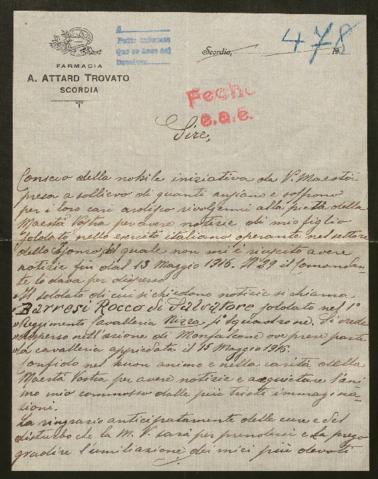 FARMACIA
A. ATTARD TROVATO
SCORDIA
Scordia, 191
478
Fecho
e.a.e.
Sire,
Conscio della nobile iniziativa da V. Maestà
presa a sollievo di quanti ansiano e soffrono
per i loro cari ardisco rivolgermi alla pietà della
Maestà Vostra per avere notizie di mio figlio
soldato nello esercito italiano operante nel settore
dello Isonzo, del quale non mi è riuscito avere
notizie fin dal 13 Maggio 1916. N° 29 il Comandante
lo dava per disperso.
Il soldato di cui si chiedono notizie si chiama
Barresi Rocco di Salvatore soldato nel 1°
Reggimento Cavalleria Nizza, 1° Squadrone. Si crede
disperso nell'azione di Monfalcone ove prese parte
la cavalleria appiedata il 15 Maggio 1916.
Confido nel buon animo e nella carità della
Maestà Vostra per avere notizie e acquietare l'ani
mo mio commosso dalle più tristi immagina
zioni.
La ringrazio anticipatamente delle cure e del
disturbo che la M. V. sarà per prendersi e La prego
gradire l'umiliazione dei miei più devoti